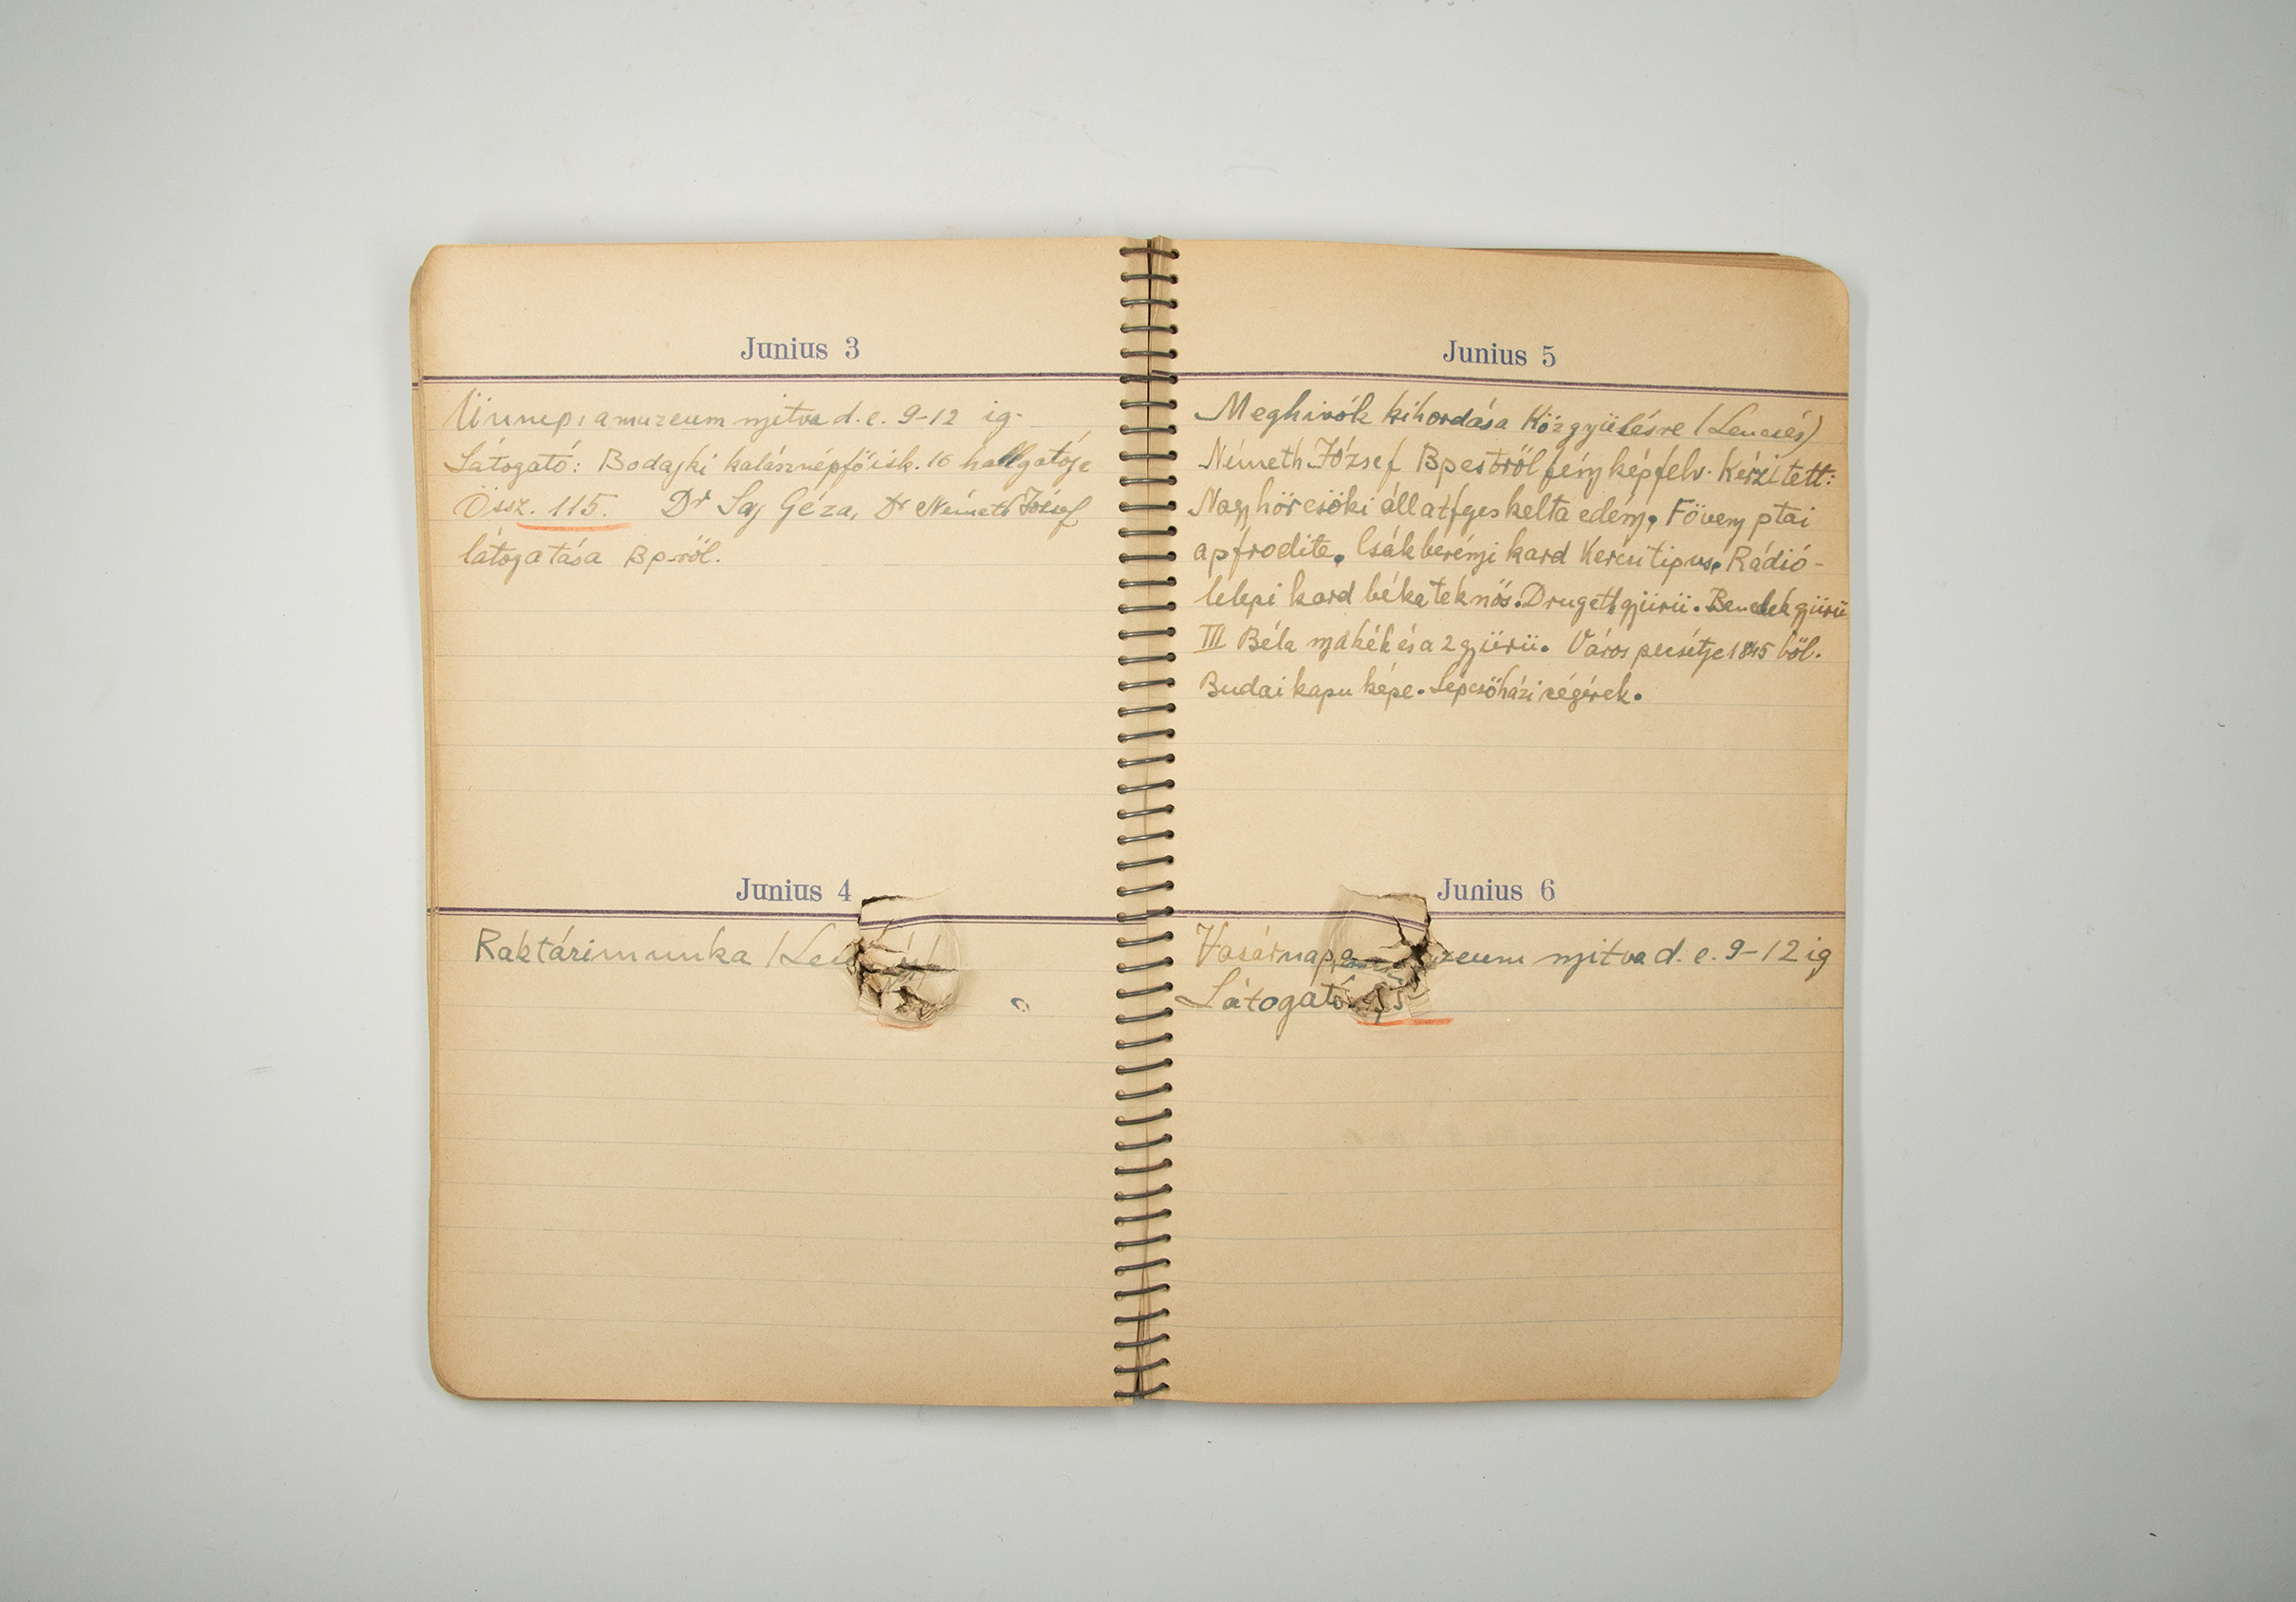 Junius 3
Ünnep, a muzeum nyitva d. e. 9-12 ig.
Látogató: Bodajki kalásznépfőisk. 16 hallgatója
Össz. 115. Dr Géza, Dr Németh József
látogatása Bp-ről.
Junius 4
Raktári munka /
Junius 5
Meghivók kihordása Közgyülésre /Lencsés/
Németh József Bpestről fényképfelv. Készitett:
Nagyhörcsöki állatfejes kelta edény, Fövenyptai
apfrodite. Csákberényi kard Kercsi tipus. Rádió-
telepi kard békateknős. Drugeth gyürü. Benedek gyürü
III Béla nyakék és a 2 gyürü. Város pecsétje 1845 ből.
Budai kapu képe. Lépcsőházi cégérek.
Junius 6
Vasárnap a nyitva d. e. 9-12 ig
Látogató